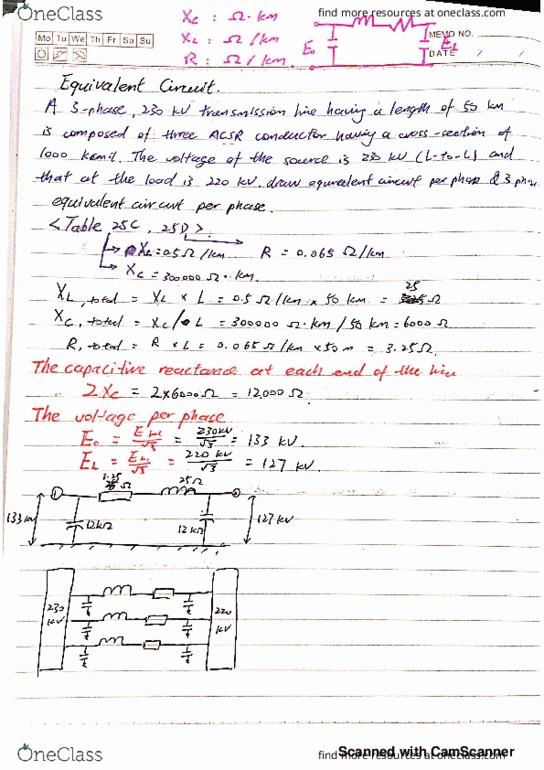 OneClass
find more resources at oneclass.com
Xc : Ω·km
XL : Ω/km
R : Ω/km.
E₀
EL
MEMO NO.
DATE / /
Mo Tu We Th Fr Sa Su
Equivalent Circuit.
A 3-phase, 230 kV transmission line having a length of 50 km
is composed of three ACSR conductor having a cross-section of
1000 kcmil. The voltage of the source is 230 kV (L-to-L) and
that at the load is 220 kV. draw equivalent circuit per phase & 3 phase
equivalent circuit per phase.
<Table, 25C, 25D>
XL = 0.5 Ω/km R = 0.065 Ω/km
Xc = 300000 Ω·km.
XL, total = XL × L = 0.5 Ω/km × 50 km = 25 Ω
Xc, total = Xc / L = 300000 Ω·km / 50 km = 6000 Ω
R, total = R × L = 0.065 Ω/km × 50 m = 3.25 Ω.
The capacitive reactance at each end of the line
2Xc = 2×6000 Ω = 12000 Ω.
The voltage per phase
E₀ = = 230kV/√3 = 133 kV.
EL = = 220 kV/√3 = 127 kV.
3.25 Ω
25Ω
133 kV
12kΩ
12 kΩ
127 kV
230 kV
220 kV
OneClass
find more resources at oneclass.com
Scanned with CamScanner